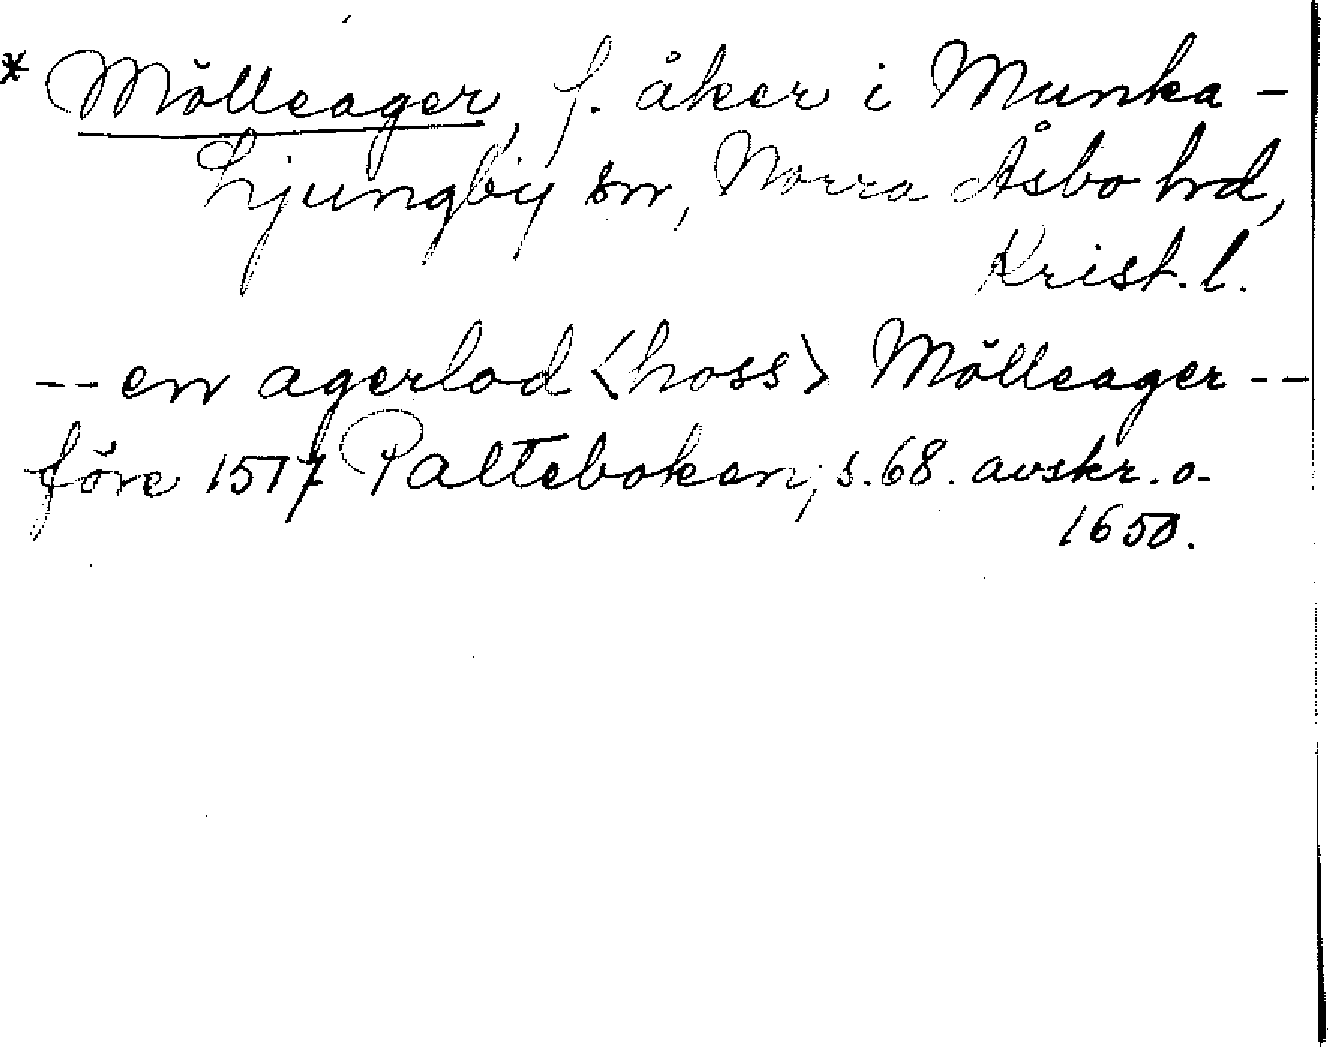 * Mölleager, f. åker i Munka-
Ljungby sn, Norra Åsbo hrd,
Krist. l.
-- en agerlod <hoss> Mölleager --
före 1517 Palteboken, s. 68. avskr. o.
1650.